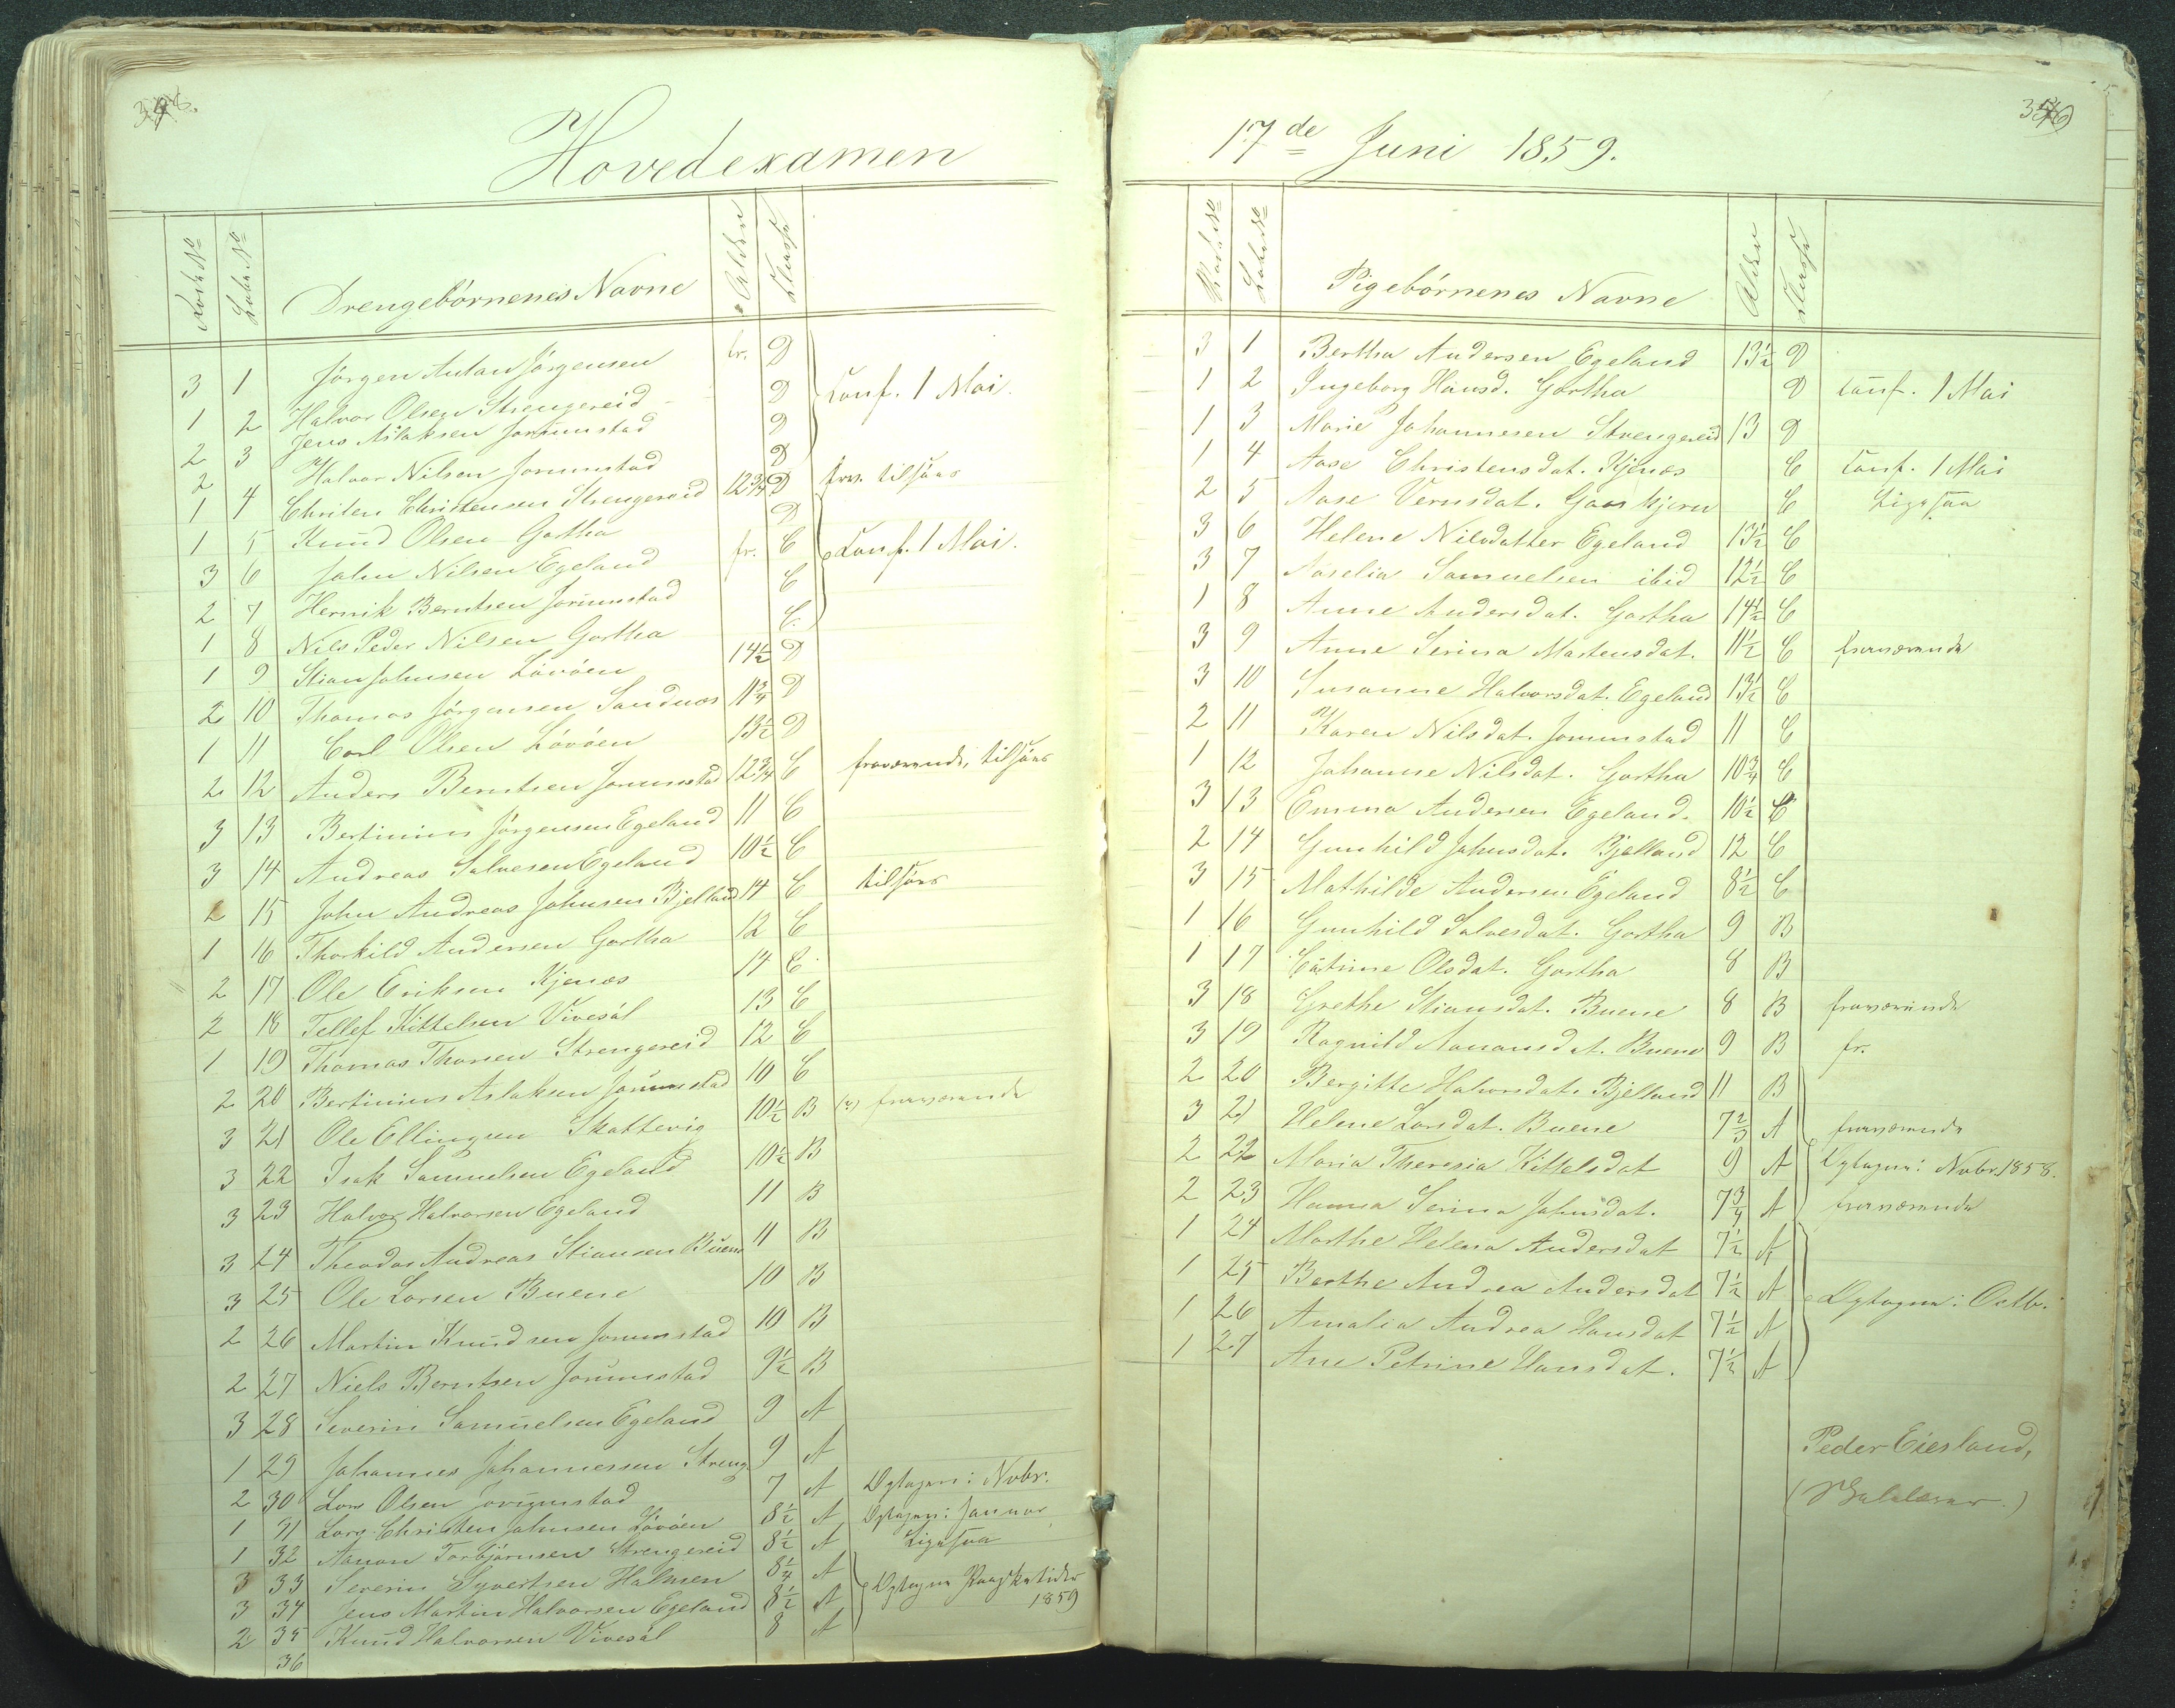 Hovedexamen
Drengebörnenes Navne Alder
3 1 Jörgen Anton Jörgensen fr. D
1 2 Halvor Olsen Strengereid D Conf. 1 Mai.
2 3 Jens Aslaksen Jorunnstad D
2 4 Halvor Nilsen Jorunnstad D
1 4 Christen Christensen Strengereid 12 3/4 D frv. tilsöes
1 5 Knud Olsen Gartha D
3 6 John Nilsen Egeland fr. C Conf. 1 Mai.
2 7 Henrik Berntsen Jorunnstad C
1 8 Nils Peder Nilsen Gartha C
1 9 Stian Johnsen Lövöen 14 1/2 D
2 10 Thomas Jörgensen Sandnes 11 3/4 D
1 11 Carl Olsen Lövöen 13 1/2 D
2 12 Anders Berntsen Jorunnstad 12 3/4 C fraværende, tilsöes
3 13 Bertinius Jörgensen Egeland 11 C
3 14 Andreas Salvesen Egeland 10 1/2 C
2 15 John Andreas Johnsen Bjelland 14 C tilsöes
1 16 Thorkild Andersen Gartha 12 C
2 17 Ole Eriksen Kjenes 14 C
2 18 Tellef Kittelsen Vivesöl 13 C
1 19 Thomas Thorsen Strengereid 12 C
2 20 Bertinius Aslaksen Jorunnstad 10 C
3 21 Ole Ellingsen Skattevig 10 1/2 B fraværende
3 22 Isak Samuelsen Egeland 10 1/2 B
3 23 Halvor Halvorsen Egeland 11 B
3 24 Theodor Andreas Stiansen Buene 11 B
3 25 Ole Larsen Buene 10 B
2 26 Martin Knudsen Jorunnstad 10 B
2 27 Niels Berntsen Jorunnstad 9 1/2 B
3 28 Severin Samuelsen Egeland 9 A
1 29 Johannes Johannessen Streng. 9 A
2 30 Lars Olsen Jorunnstad 7 A Optagen i Novbr.
1 31 Lars Christen Johnsen Lövöen 8 1/2 A Optagen i Januar
1 32 Aanon Torbjörnsen Strengereid 8 1/2 A Ligesaa
3 33 Severin Syvertsen Holmen 8 1/4 A
3 34 Jens Martin Halvorsen Egeland 8 1/2 A Optagen Paasketider 1859
2 35 Knud Halvorsen Vivesöl 8 A
36
17de Juni 1859.
Pigebörnenes Navne Alder
3 1 Bertha Andersen Egeland 13 1/2 D
1 2 Ingeborg Hansd. Gartha D Conf. 1 Mai
1 3 Marie Johannesen Strengereid 13 D
1 4 Aase Christensdat. Kjenes C Conf. 1 Mai
2 5 Aase Vernsdat. Gaaskjern C Ligesaa
3 6 Helene Nilsdatter Egeland 13 1/2 C
3 7 Aaselia Samuelsen ibid 12 1/2 C
1 8 Anne Andersdat. Gartha 14 1/2 C
3 9 Anne Serina Martensdat. 11 1/2 C fraværende
3 10 Susanne Halvorsdat. Egeland 13 1/2 C
2 11 Karen Nilsdat. Jorunnstad 11 C
1 12 Johanne Nilsdat. Gartha 10 3/4 C
3 13 Emma Andersen Egeland. 10 1/2 C
2 14 Gunhild Johnsdat. Bjelland 12 C
3 15 Mathilde Andersen Egeland 8 1/2 C
1 16 Gunhild Salvesdat. Gartha 9 B
1 17 Catrine Olsdat. Gartha 8 B
3 18 Grethe Stiansdat. Buene 8 B fraværende
3 19 Ragnild Aanonsdat. Buene 9 B fr.
2 20 Bergitte Halvorsdat. Bjelland 11 B
3 21 Helene Larsdat. Buene 7 2/3 A fraværende
2 22 Maria Theresia Kittelsdat 9 A Optagen i Novbr. 1858.
2 23 Hanna Serina Johnsdat. 7 3/4 A fraværende
1 24 Marthe Helena Andersdat 7 1/2 A
1 25 Berthe Andrea Andersdat 7 1/2 A Optagen i Octb.
1 26 Amalia Andrea Hansdat 7 1/2 A
1 27 Ane Petrine Hansdat. 7 1/2 A
Peder Eiesland,